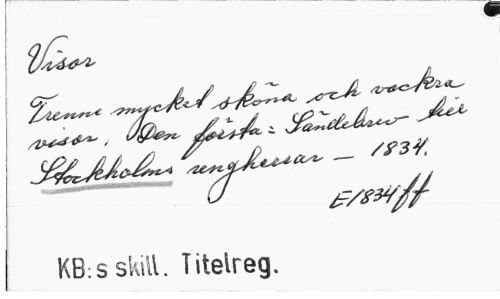 Visor
Trenne mycket sköna och vackra
visor. Den första: Sändebrev till
Stockholms ungherrar — 1834.
E1834ff
KB:s skill. Titelreg.